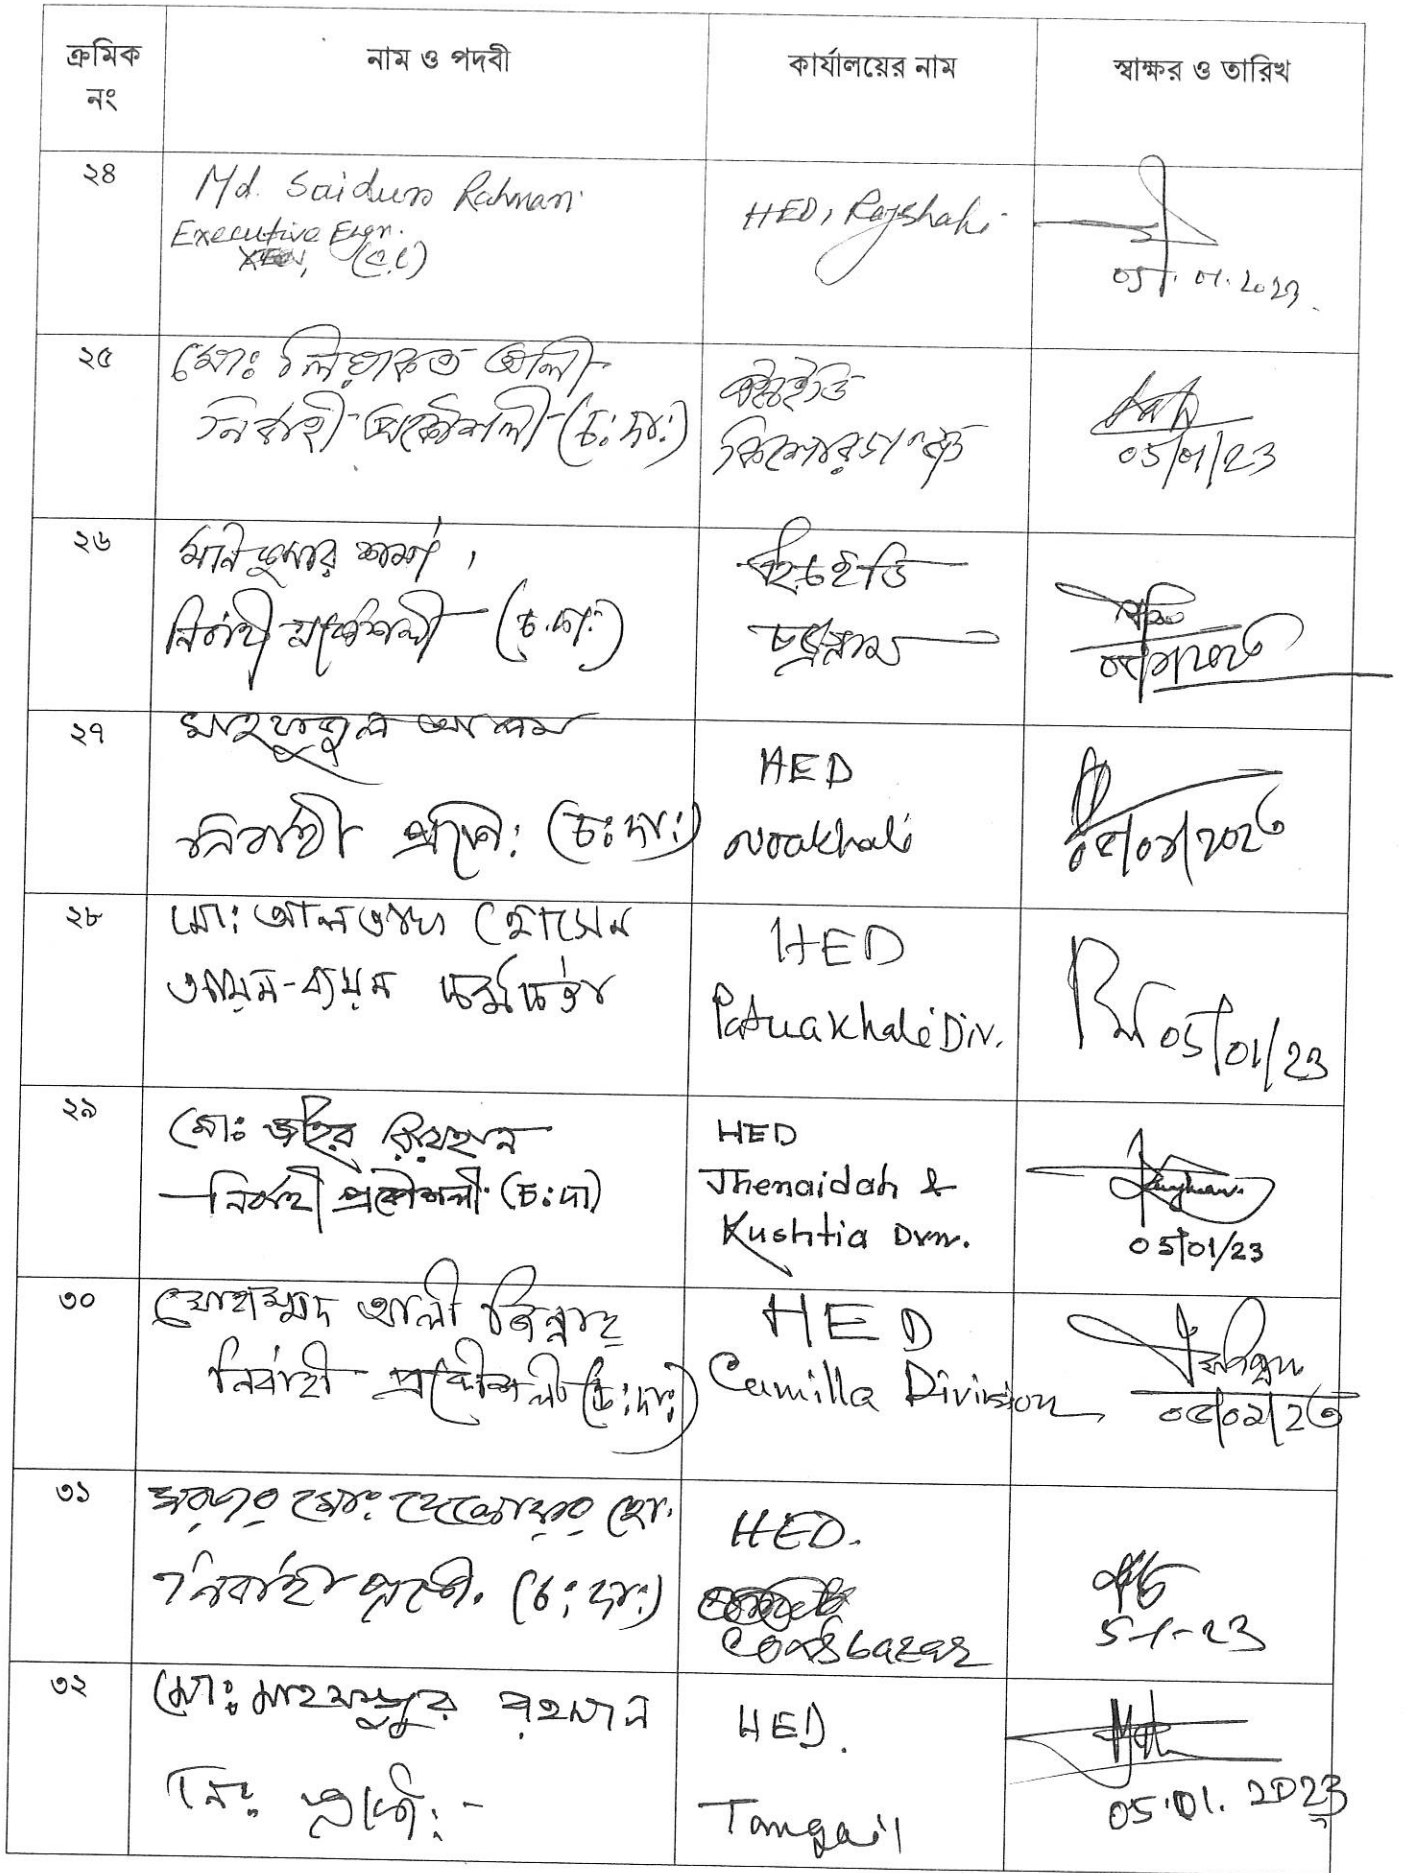 ক্রমিক নং
নাম ও পদবী
কার্যালয়ের নাম
স্বাক্ষর ও তারিখ
২৪
Md. Saidur Rahman
Executive Engr.
(C.C)
HED, Rajshahi
05.01.2023
২৫
মোঃ লিয়াকত আলী
নির্বাহী প্রকৌশলী (চঃ দাঃ)
এইচইডি
কিশোরগঞ্জ
05/01/23
২৬
মনি কুমার শর্মা,
নির্বাহী প্রকৌশলী (চ.দাঃ)
এইচইডি
চট্টগ্রাম
০৫/০১/২০২৩
২৭
মাহফুজুল আলম
নির্বাহী প্রকৌ: (চঃ দাঃ)
HED
Noakhali
০৫/০১/২০২৩
২৮
মো: আলতাফ হোসেন
আয়ন-ব্যয়ন কর্মকর্তা
HED
Patuakhali Div.
05/01/23
২৯
মোঃ জহির রায়হান
নির্বাহী প্রকৌশলী (চ:দা)
HED
Jhenaidah &
Kushtia Divn.
05/01/23
৩০
মোহাম্মদ আলী জিন্নাহ
নির্বাহী প্রকৌশলী (চ:দা:)
HED
Cumilla Division
০৫/০১/২৩
৩১
মোঃ দেলোয়ার হো.
নির্বাহী প্রকৌ. (চ: দা:)
HED.
Coxsbazar
5-1-23
৩২
মোঃ মাহফুজুর রহমান
নিঃ প্রকৌ: -
HED.
Tangail
05.01.2023